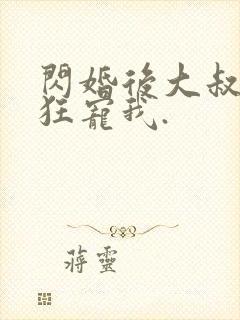 閃婚後大叔
狂寵我.
蔣靈